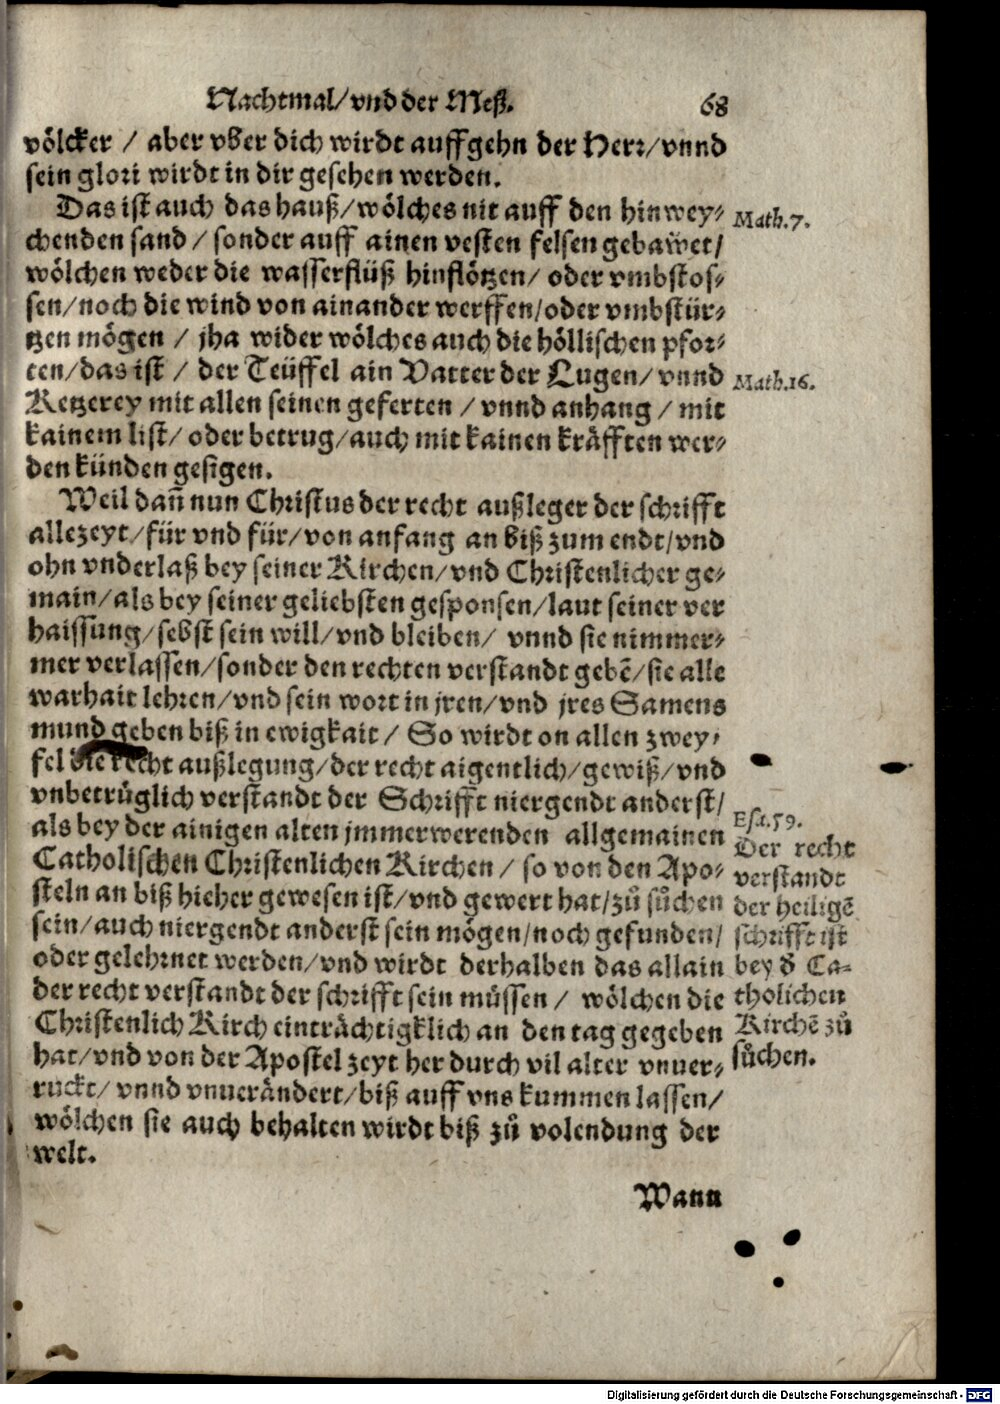 Nachtmal/vnd der Meß. 68
völcker / aber vber dich wirdt auffgehn der Herr/vnnd
sein glori wirdt in dir gesehen werden.
Das ist auch das hauß/wölches nit auff den hinwey-
chenden sand / sonder auff ainen vesten felsen gebawet/
wölchen weder die wasserflüß hinflötzen/ oder vmbstos-
sen/noch die wind von ainander werffen/oder vmbstür-
tzen mögen / jha wider wölches auch die höllischen pfor-
ten/das ist / der Teüffel ain Vatter der Lugen/ vnnd
Ketzerey mit allen seinen geferten / vnnd anhang / mit
kainem list/ oder betrug/auch mit kainen kräfften wer-
den künden gesigen.
Weil dañ nun Christus der recht außleger der schrifft
allezeyt/für vnd für/von anfang an biß zum endt/vnd
ohn vnderlaß bey seiner Kirchen/vnd Christenlicher ge-
main/als bey seiner geliebsten gesponsen/laut seiner ver
haissung/sebst sein will/vnd bleiben/ vnnd sie nimmer-
mer verlassen/sonder den rechten verstandt gebē/sie alle
warhait lehren/vnd sein wort in jren/vnd jres Samens
mund geben biß in ewigkait / So wirdt on allen zwey-
fel die recht außlegung/der recht aigentlich/gewiß/vnd
vnbetrüglich verstandt der Schrifft niergendt anderst/
als bey der ainigen alten jmmerwerenden allgemainen
Catholischen Christenlichen Kirchen / so von den Apo-
steln an biß hieher gewesen ist/vnd gewert hat/zů sůchen
sein/auch niergendt anderst sein mögen/noch gefunden/
oder gelehrnet werden/vnd wirdt derhalben das allain
der recht verstandt der schrifft sein müssen / wölchen die
Christenlich Kirch einträchtigklich an den tag gegeben
hat/vnd von der Apostel zeyt her durch vil alter vnuer-
ruckt/ vnnd vnuerändert/biß auff vns kummen lassen/
wölchen sie auch behalten wirdt biß zů volendung der
welt.
Wann
Math.7.
Math.16.
Esa.59.
Der recht
verstandt
der heiligē
schrifft ist
bey d̄ Ca-
tholichen
Kirchē zů
sůchen.
Digitalisierung gefördert durch die Deutsche Forschungsgemeinschaft - DFG